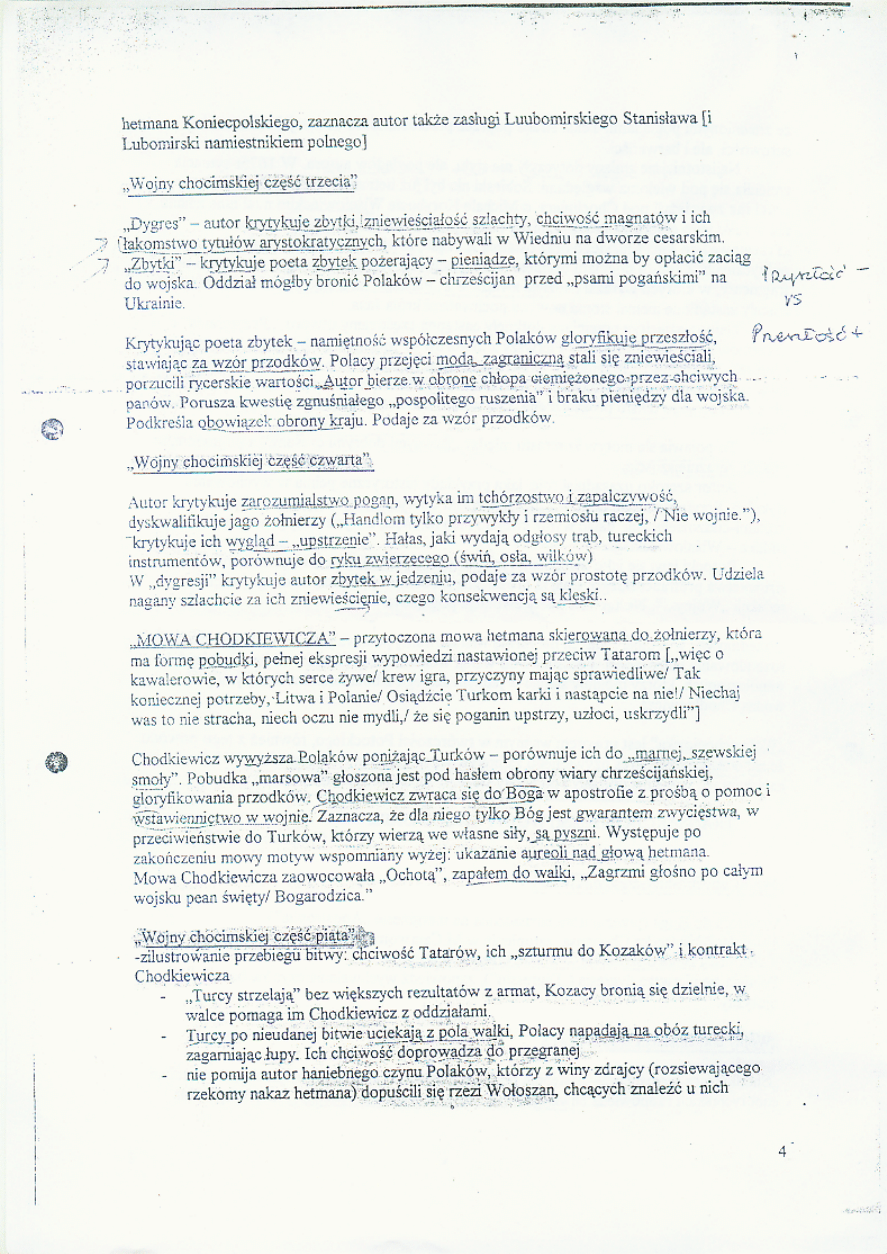 hetmana Koniecpolskiego, zaznacza autor także zasługi Luubomirskiego Stanisława [i
Lubomirski namiestnikiem polnego]
„Wojny chocimskiej część trzecia”
„Dygres” – autor krytykuje zbytki, zniewieściałość szlachty, chciwość magnatów i ich
łakomstwo tytułów arystokratycznych, które nabywali w Wiedniu na dworze cesarskim.
„Zbytki” – krytykuje poeta zbytek pożerający – pieniądze, którymi można by opłacić zaciąg
do wojska. Oddział mógłby bronić Polaków – chrześcijan przed „psami pogańskimi” na
Ukrainie.
vs
Przeszłość +
Krytykując poeta zbytek – namiętność współczesnych Polaków gloryfikuje przeszłość,
stawiając za wzór przodków. Polacy przejęci modą zagraniczną stali się zniewieściali,
porzucili rycerskie wartości. Autor bierze w obronę chłopa ciemiężonego przez chciwych
panów. Porusza kwestię zgnuśniałego „pospolitego ruszenia” i braku pieniędzy dla wojska.
Podkreśla obowiązek obrony kraju. Podaje za wzór przodków.
„Wojny chocimskiej część czwarta”
Autor krytykuje zarozumialstwo pogan, wytyka im tchórzostwo i zapalczywość,
dyskwalifikuje jago żołnierzy („Handlom tylko przywykły i rzemiosłu raczej, / Nie wojnie.”),
krytykuje ich wygląd – „upstrzenie”. Hałas, jaki wydają odgłosy trąb, tureckich
instrumentów, porównuje do ryku zwierzęcego (świń, osła, wilków)
W „dygresji” krytykuje autor zbytek w jedzeniu, podaje za wzór prostotę przodków. Udziela
nagany szlachcie za ich zniewieścięnie, czego konsekwencją są klęski..
„MOWA CHODKIEWICZA” – przytoczona mowa hetmana skierowana do żołnierzy, która
ma formę pobudki, pełnej ekspresji wypowiedzi nastawionej przeciw Tatarom [„więc o
kawalerowie, w których serce żywe/ krew igra, przyczyny mając sprawiedliwe/ Tak
koniecznej potrzeby, Litwa i Polanie/ Osiądźcie Turkom karki i nastąpcie na nie!/ Niechaj
was to nie stracha, niech oczu nie mydli,/ że się poganin upstrzy, uzłoci, uskrzydli”]
Chodkiewicz wywyższa Polaków poniżając Turków – porównuje ich do „marnej, szewskiej
smoły”. Pobudka „marsowa” głoszona jest pod hasłem obrony wiary chrześcijańskiej,
gloryfikowania przodków. Chodkiewicz zwraca się do Boga w apostrofie z prośbą o pomoc i
wstawiennictwo w wojnie. Zaznacza, że dla niego tylko Bóg jest gwarantem zwycięstwa, w
przeciwieństwie do Turków, którzy wierzą we własne siły, są pyszni. Występuje po
zakończeniu mowy motyw wspomniany wyżej: ukazanie aureoli nad głową hetmana.
Mowa Chodkiewicza zaowocowała „Ochotą”, zapałem do walki, „Zagrzmi głośno po całym
wojsku pean święty/ Bogarodzica.”
„Wojny chocimskiej część piąta”
-zilustrowanie przebiegu bitwy: chciwość Tatarów, ich „szturmu do Kozaków” i kontrakt
Chodkiewicza
- „Turcy strzelają” bez większych rezultatów z armat, Kozacy bronią się dzielnie, w
walce pomaga im Chodkiewicz z oddziałami.
- Turcy po nieudanej bitwie uciekają z pola walki, Polacy napadają na obóz turecki,
zagarniając łupy. Ich chciwość doprowadza do przegranej
- nie pomija autor haniebnego czynu Polaków, którzy z winy zdrajcy (rozsiewającego
rzekomy nakaz hetmana) dopuścili się rzezi Wołoszan, chcących znaleźć u nich
4